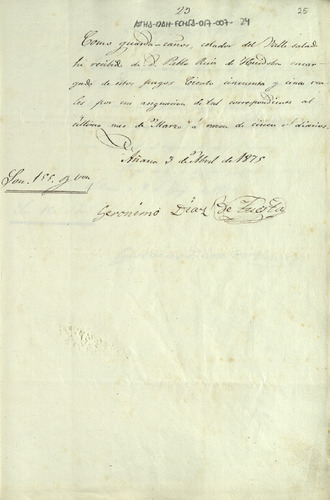 23
ATHA-DAH-FCHSA-017-007-24
25
Como guarda-caños, celador del Valle salado
he recibido de D. Pablo de encar-
gado de estos pagos Ciento cincuenta y cinco rea-
les por mi asignacion de los correspondientes al
último mes de "Marzo" á razon de cinco rl diarios.
Añana 3 de Abril de 1875
Son 155. rs von
Geronimo Diaz de Tuesta